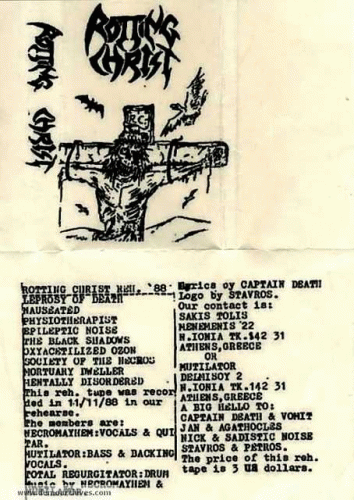 ROTTING CHRIST
ROTTING
CHRIST
ROTTING CHRIST REH. '88
LEPROSY OF DEATH
NAUSEATED
PHYSIOTHERAPIST
EPILEPTIC NOISE
THE BLACK SHADOWS
OXYACETILIZED OZON
SOCIETY OF THE NECROS
MORTUARY DWELLER
MENTALLY DISORDERED
This reh. tape was recor
ded in 11/11/88 in our
rehearse.
The members are:
NECROMAYHEM:VOCALS & QUI
TAR.
MUTILATOR:BASS & BACKING
VOCALS.
TOTAL REGURGITATOR:DRUM
Music by NECROMAYHEM &
Lyrics by CAPTAIN DEATH
Logo by STAVROS.
Our contact is:
SAKIS TOLIS
MENEMENIS '22
N.IONIA TK.142 31
ATHENS,GREECE
OR
MUTILATOR
DELHISOY 2
N.IONIA TK.142 31
ATHENS,GREECE
A BIG HELLO TO:
CAPTAIN DEATH & VOMIT
JAN & AGATHOCLES
NICK & SADISTIC NOISE
STAVROS & PETROS.
The price of this reh.
tape is 3 US dollars.